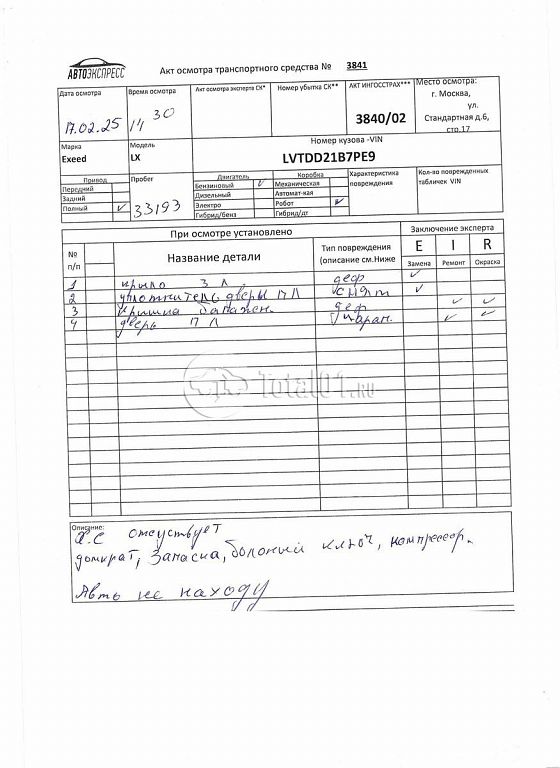 АВТОЭКСПРЕСС
Акт осмотра транспортного средства № 3841
Дата осмотра
17.02.25
Время осмотра
14 30
Акт осмотра эксперта СК*
Номер убытка СК**
АКТ ИНГОССТРАХ***
3840/02
Место осмотра:
г. Москва,
ул.
Стандартная д.6,
стр.17
Марка
Exeed
Модель
LX
Номер кузова -VIN
LVTDD21B7PE9
Привод
Передний
Задний
Полный ✓
Пробег
33193
Двигатель
Бензиновый ✓
Дизельный
Электро
Гибрид/бенз
Коробка
Механическая
Автомат-кая
Робот ✓
Гибрид/дт
Характеристика
повреждения
Кол-во поврежденных
табличек VIN
При осмотре установлено
Заключение эксперта
№
п/п
Название детали
Тип повреждения
(описание см.Ниже
E I R
Замена Ремонт Окраска
1 крыло З Л деф ✓
2 уплотнитель двери П Л снят ✓
3 крышка багажн. деф ✓ ✓
4 дверь П Л царап. ✓ ✓
Total01.RU
Описание:
Х.С отсуствует
домкрат, Запаска, болоный ключ, компрессор.
Авть не находу